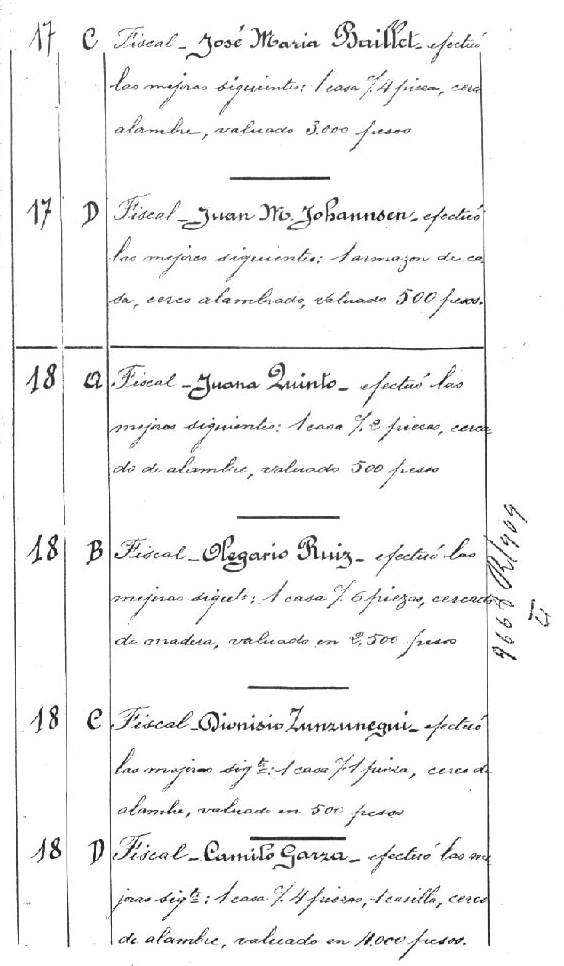 17 C Fiscal - José Maria Baillet - efectuó
las mejoras siguientes: 1 casa /. 4 piezas, cerco
alambre, valuado 3.000 pesos
17 D Fiscal - Juan M. Johannsen - efectuó
las mejoras siguientes: 1 armazon de ca-
sa, cerco alambrado, valuado 500 pesos.
18 A Fiscal - Juana Quinto - efectuó las
mejoras siguientes: 1 casa /. 2 piezas, cerca
do de alambre, valuado 500 pesos
18 B Fiscal - Olegario Ruiz - efectuó las
mejoras siguts: 1 casa /. 6 piezas, cercado
de madera, valuado en 2.500 pesos
18 C Fiscal - Dionisio Zunzunegui - efectuó
las mejoras sigts: 1 casa /. 1 pieza, cerco de
alambre, valuado en 500 pesos
18 D Fiscal - Camilo Garza - efectuó las me
joras sigts: 1 casa /. 4 piezas, 1 casilla, cerco
de alambre, valuado en 4.000 pesos.
9668 R/909